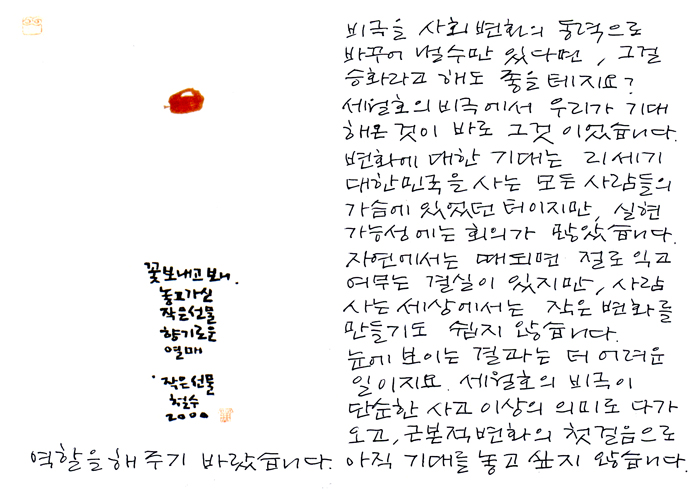 꽃 보내고 보니,
놓고 가신
작은 선물
향기로운
열매
· 작은 선물
철수
2000
비극을 사회변화의 동력으로
바꾸어 낼수만 있다면, 그걸
승화라고 해도 좋을테지요?
세월호의 비극에서 우리가 기대
해온 것이 바로 그것이었습니다.
변화에 대한 기대는 21세기
대한민국을 사는 모든 사람들의
가슴에 있었던 터이지만, 실현
가능성에는 회의가 많았습니다.
자연에서는 때되면 절로 익고
여무는 결실이 있지만, 사람
사는 세상에서는 작은 변화를
만들기도 쉽지 않습니다.
눈에 보이는 결과는 더 어려운
일이지요. 세월호의 비극이
단순한 사고 이상의 의미로 다가
오고, 근본적변화의 첫 걸음으로
역할을 해 주기 바랐습니다. 아직 기대를 놓고 싶지 않습니다.